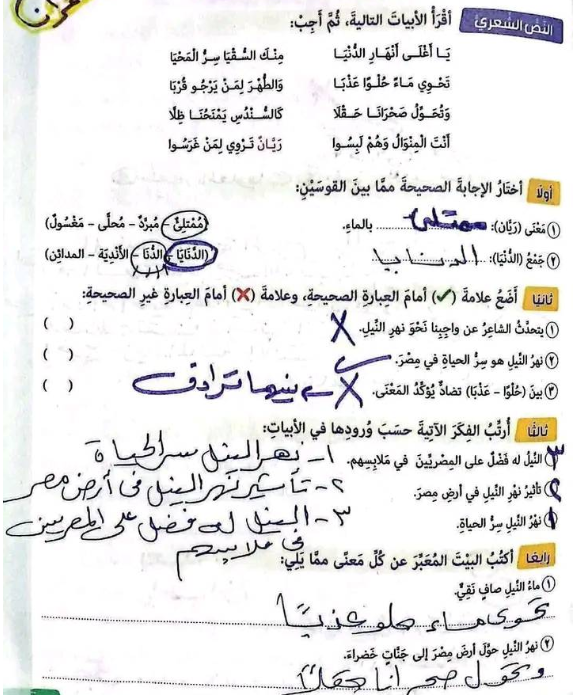 النص الشعري أقْرَأُ الأبياتَ التاليةَ، ثُمَّ أُجِبْ:
يَا أَغْلَى أَنْهَارِ الدُّنْيَا مِنْكَ السُّقْيَا سِرُّ الْمَحْيَا
تَحْوِي مَاءً حُلْوًا عَذْبًا وَالطُّهْرَ لِمَنْ يَرْجُو قُرْبًا
وَتُحَوِّلُ صَحْرَانَا حَقْلًا كَالسُّنْدُسِ يَمْنَحُنَا ظِلًّا
أَنْتَ الْمِنْوَالُ وَهُمْ لَبِسُوا رَيَّانٌ تَرْوِي لِمَنْ غَرَسُوا
أولًا أختَارُ الإجابةَ الصحيحةَ ممَّا بينَ القَوسَيْنِ:
① مَعْنَى (رَيَّان): ممتلئ بالماءِ. (مُمْتَلِئٌ – مُبرَّدٌ – مُحلًّى – مَغْسُولٌ)
② جَمْعُ (الدُّنْيَا): الدنايا (الدَّنَايَا – الدُّنَا – الأَنْدِيَة – المدائن)
ثانيًا أَضَعُ علامةَ (✓) أمامَ العِبارةِ الصحيحةِ، وعلامةَ (✗) أمامَ العِبارةِ غيرِ الصحيحةِ:
① يتحدَّثُ الشاعِرُ عن واجِبِنا نَحْوَ نهرِ النِّيلِ. ✗ ( )
② نهرُ النِّيلِ هو سِرُّ الحياةِ في مِصْرَ. ✓ ( )
③ بينَ (حُلْوًا – عَذْبًا) تضادٌّ يُؤَكِّدُ المَعْنَى. ✗ بينهما ترادف ( )
ثالثًا أُرتِّبُ الفِكَرَ الآتِيةَ حسَبَ وُرودِها في الأبياتِ:
١- نهر النيل سر الحياة
٣ النِّيلُ له فَضْلٌ على المِصْرِيِّينَ في مَلابِسِهم.
٢- تأثير نهر النيل فى أرض مصر
٢ تأثيرُ نهْرِ النِّيلِ في أرضِ مِصرَ.
٣- النيل له فضل على المصريين
١ نهْرُ النِّيلِ سِرُّ الحياةِ.
فى ملابسهم
رابعًا أكتُبُ البَيْتَ المُعَبِّرَ عن كُلِّ مَعنًى ممَّا يَلِي:
① ماءُ النِّيلِ صافٍ نَقِيٌّ.
تحوى ماء حلو عذبًا
② نهرُ النِّيلِ حوَّلَ أرضَ مِصْرَ إلى جَنَّاتٍ خَضراءَ.
وتحول صحرانا حقلًا